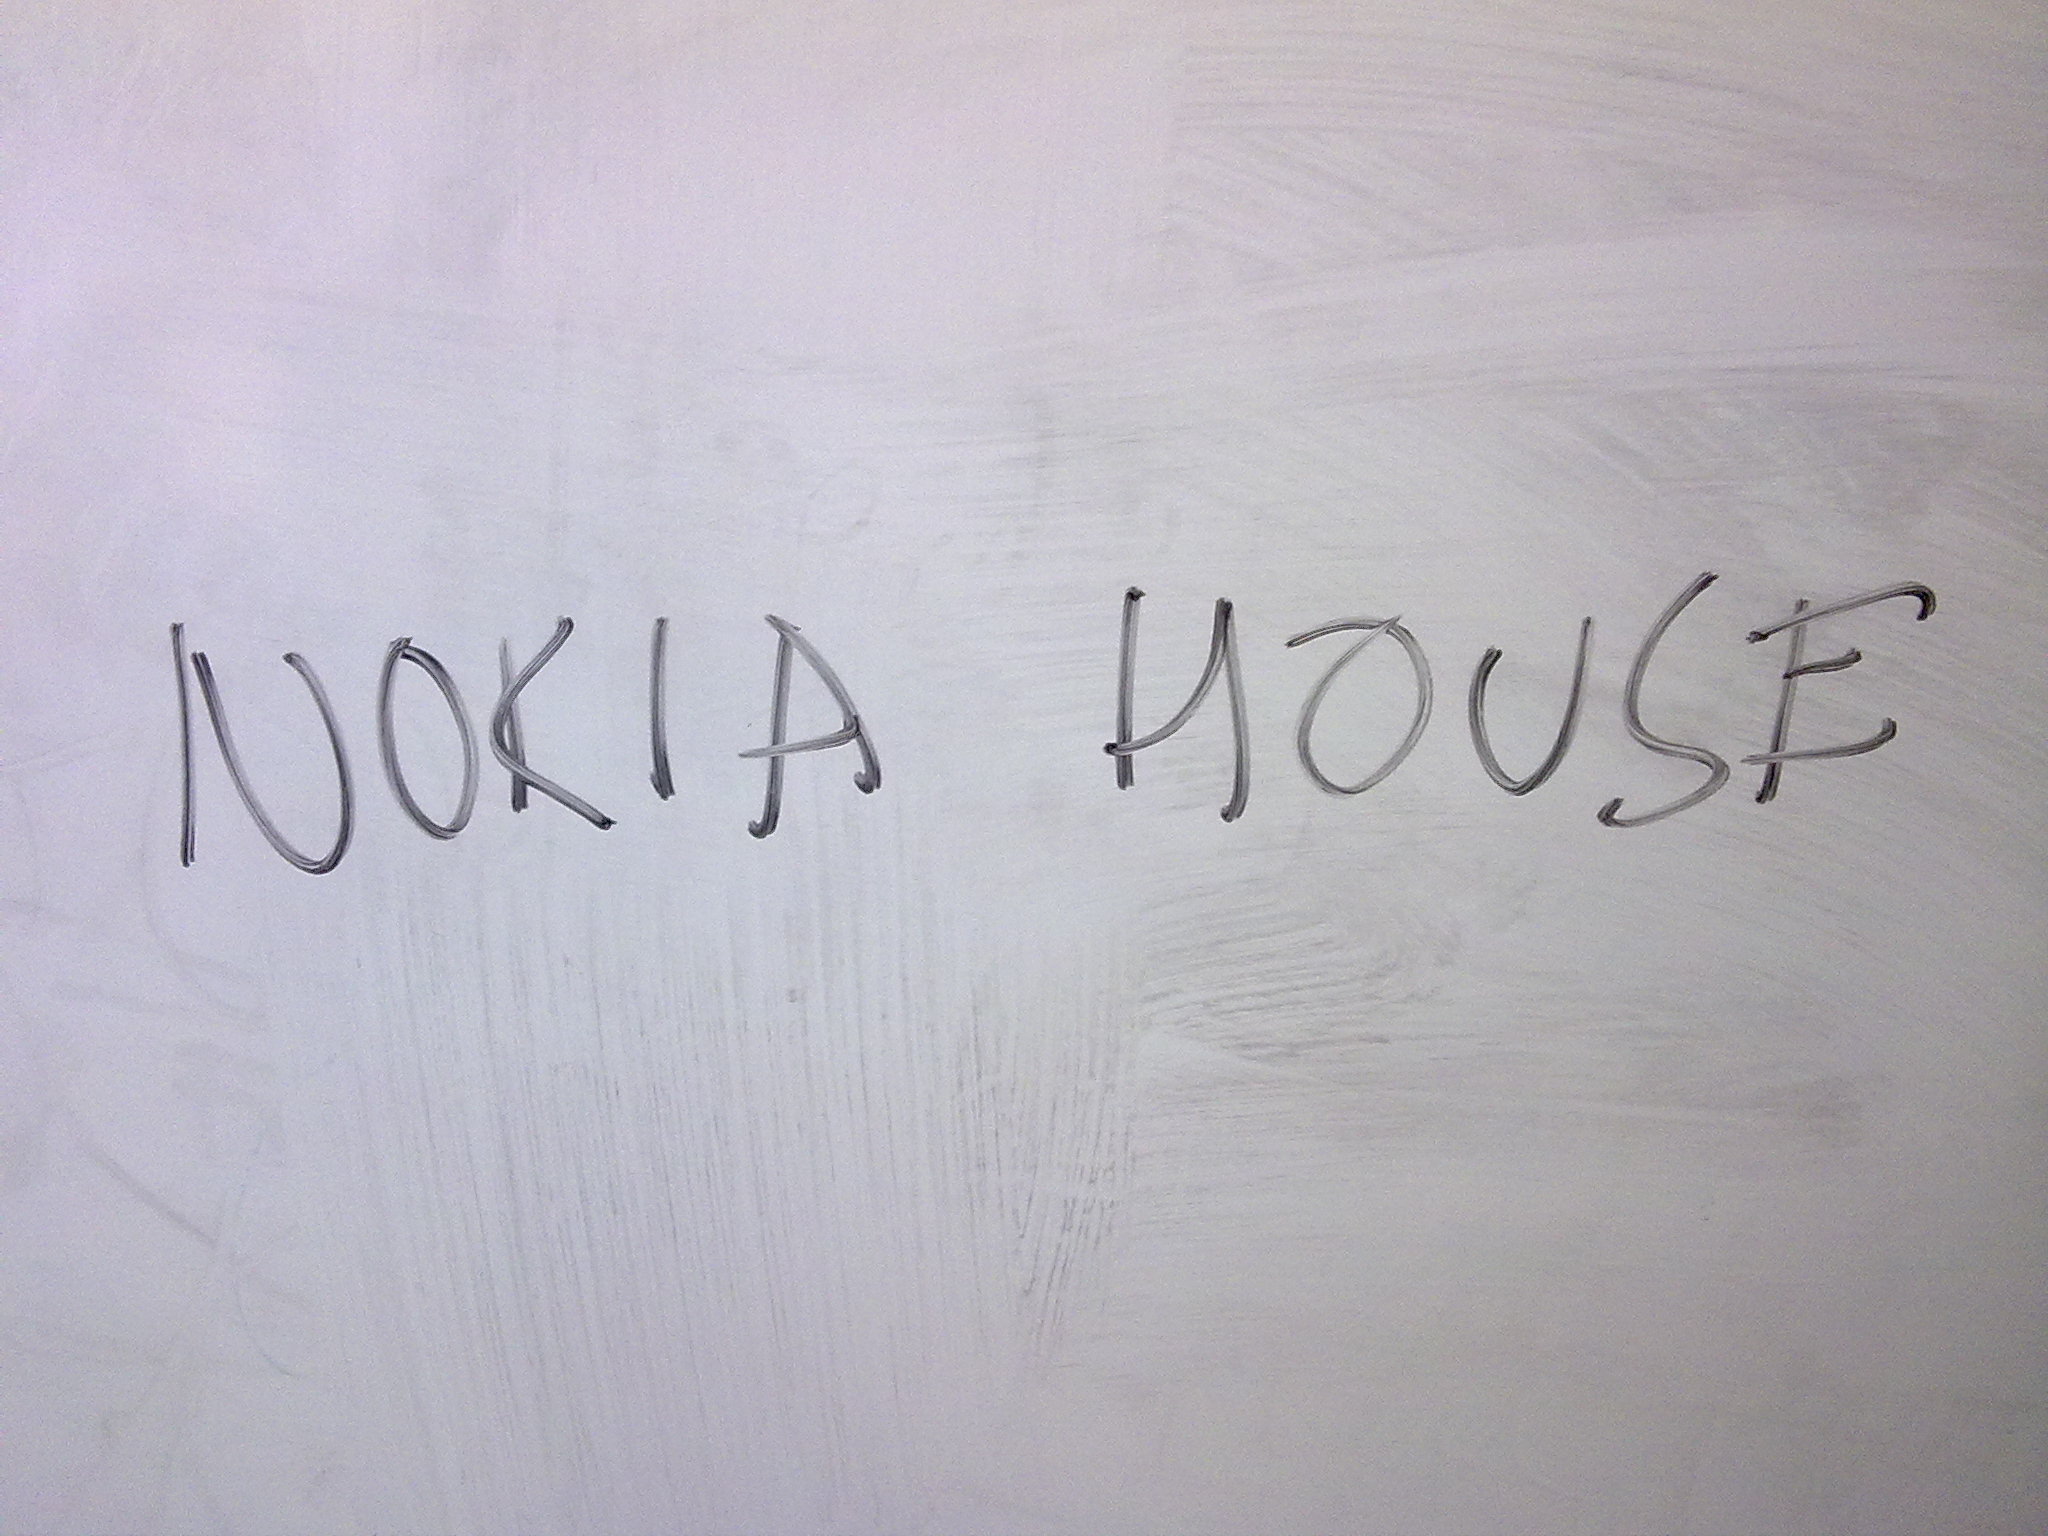 NOKIA HOUSE